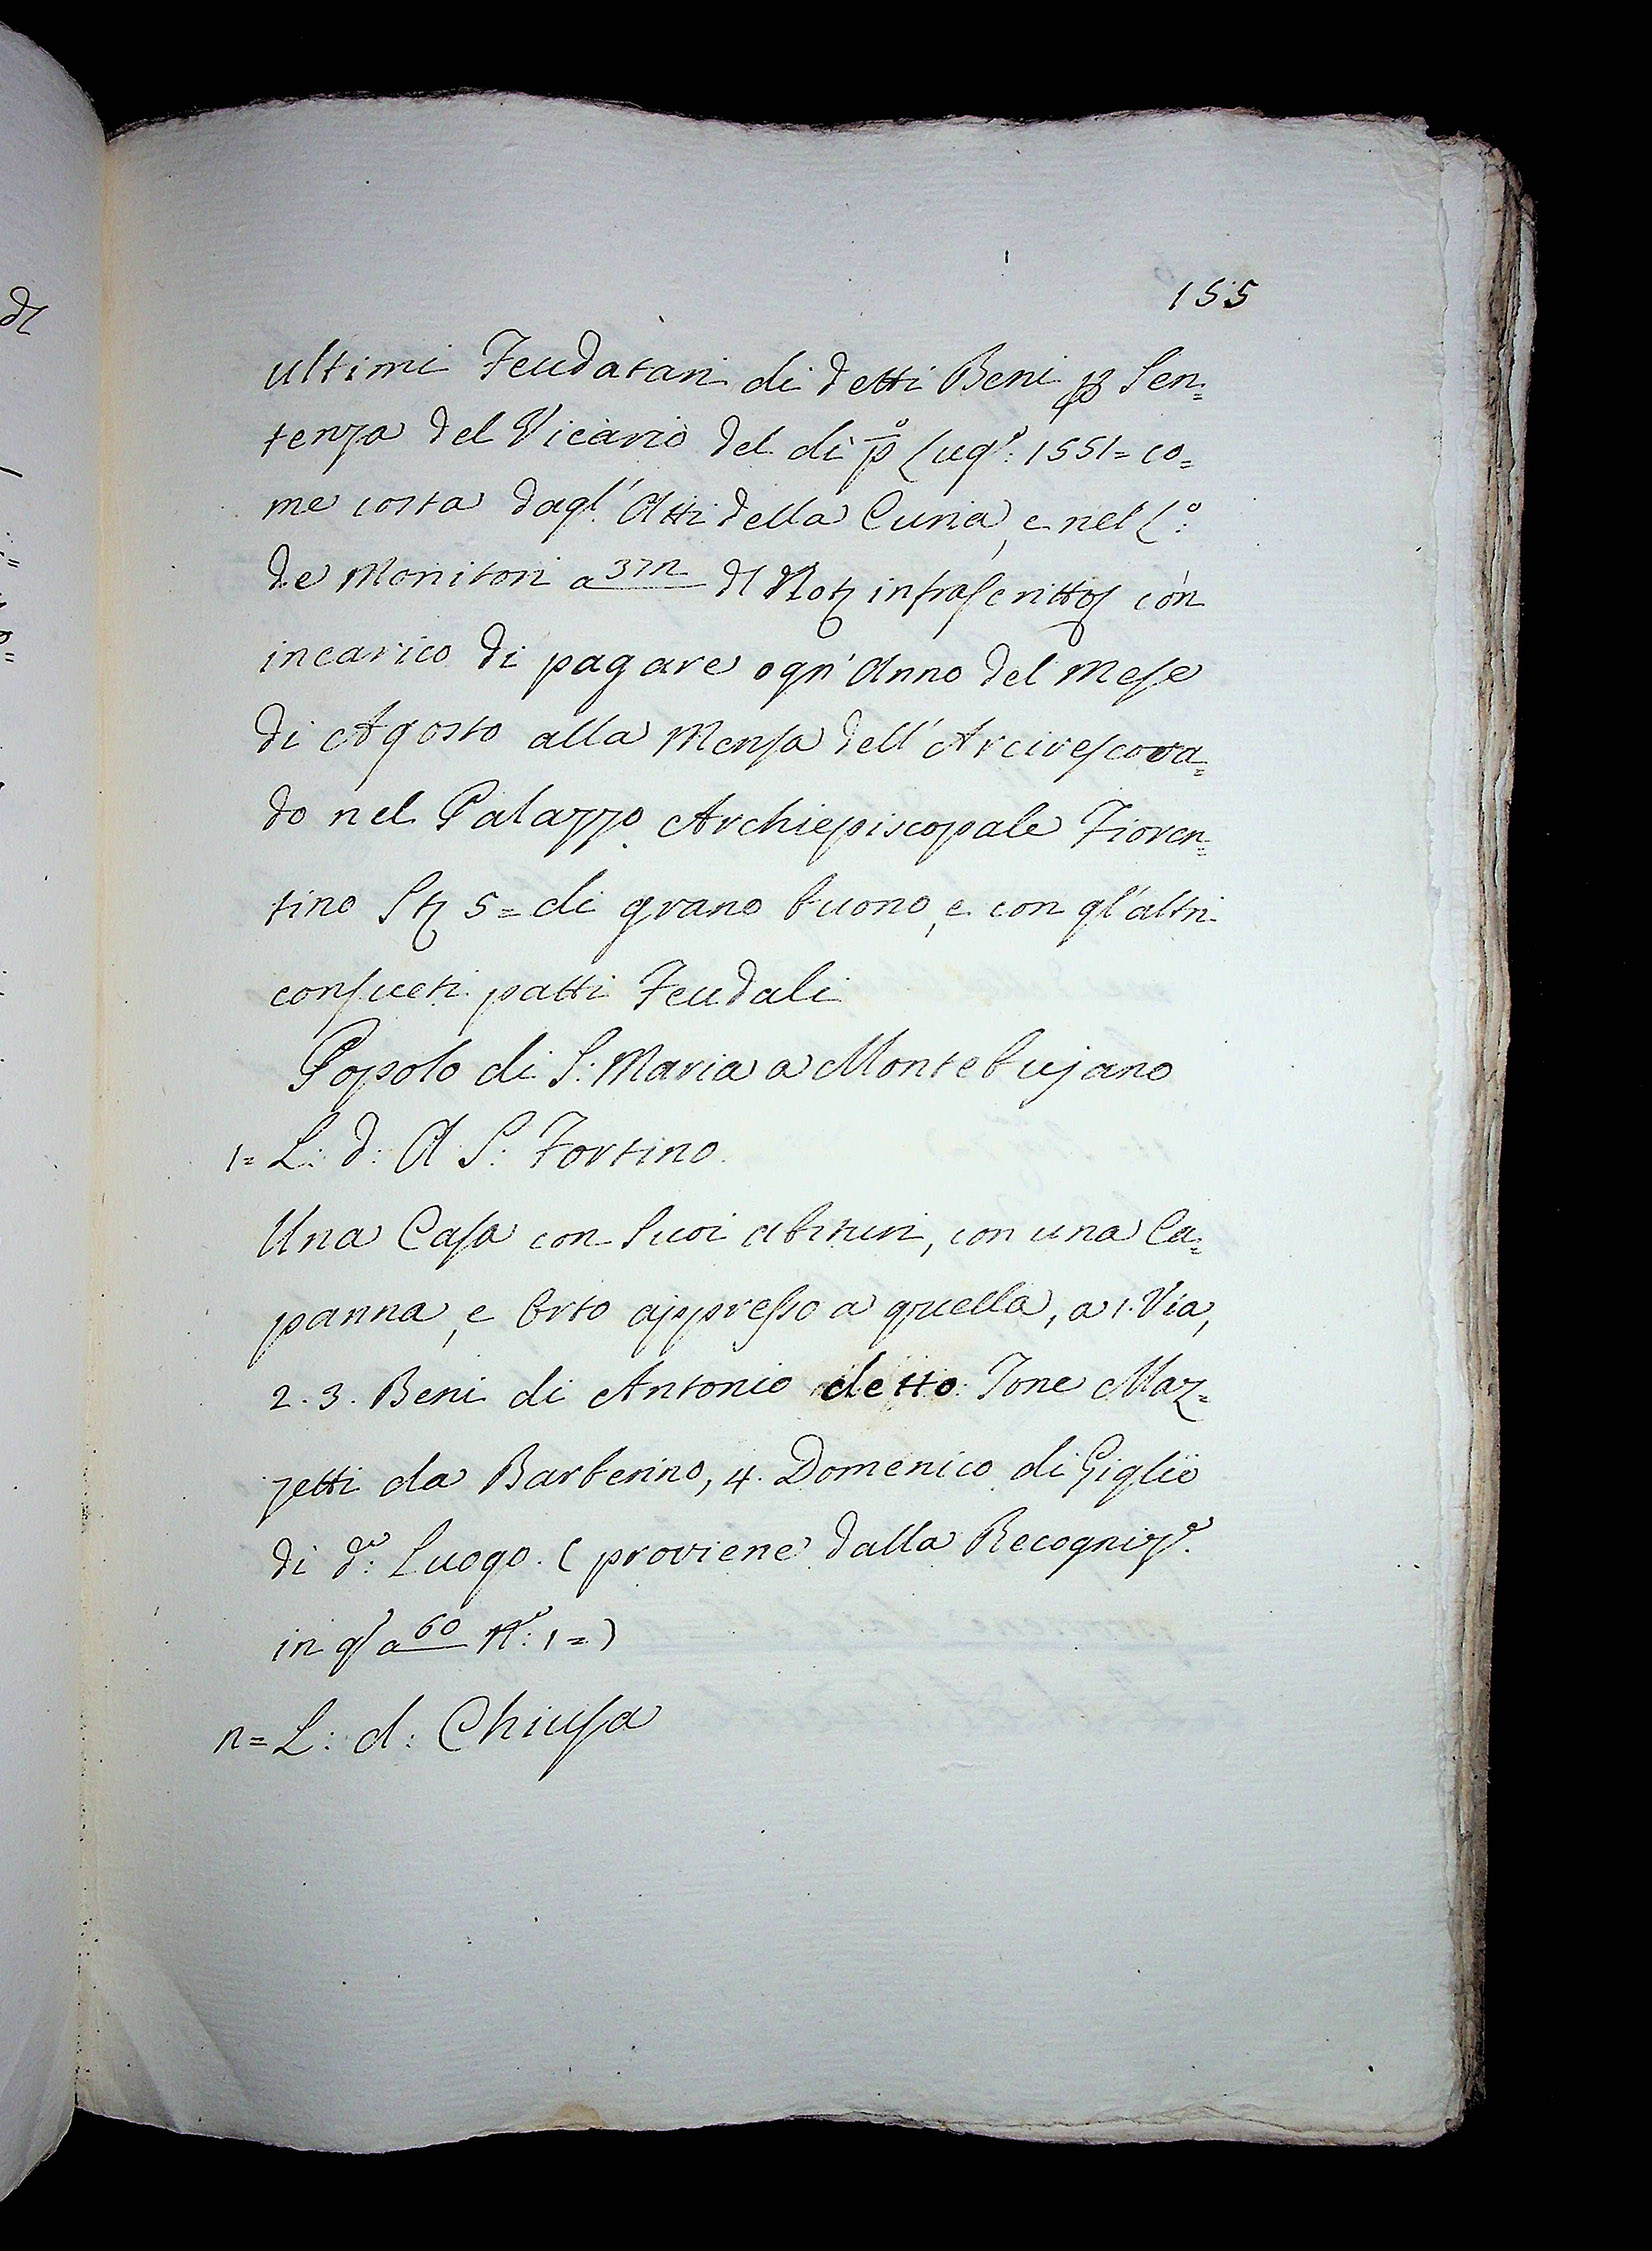 155
ultimi Feudatari di detti Beni p Sen=
tenza del Vicario del dì p.º Lugº: 1551= co=
me costa dagl' Atti della Curia, e nel Lº:
de Monitori a 372 dl Not infrascritto con
incarico di pagare ogn' Anno del Mese
di Agosto alla Mensa dell' Arcivescova=
do nel Palazzo Archiepiscopale Fioren=
tino St 5= di grano buono, e con gl' altri
consueti patti Feudali
Popolo di S: Maria a Montebujano
1= L: d: A S: Fortino
Una Casa con Suoi abituri, con una Ca=
panna, e Orto appresso a quella, a 1. Via,
2. 3. Beni di Antonio detto Tone Maz=
zetti da Barberino, 4. Domenico di Giglio
di dº: Luogo. (proviene dalla Recognizº.
in qº a 60 Nº: 1=)
2= L: d: Chiusa